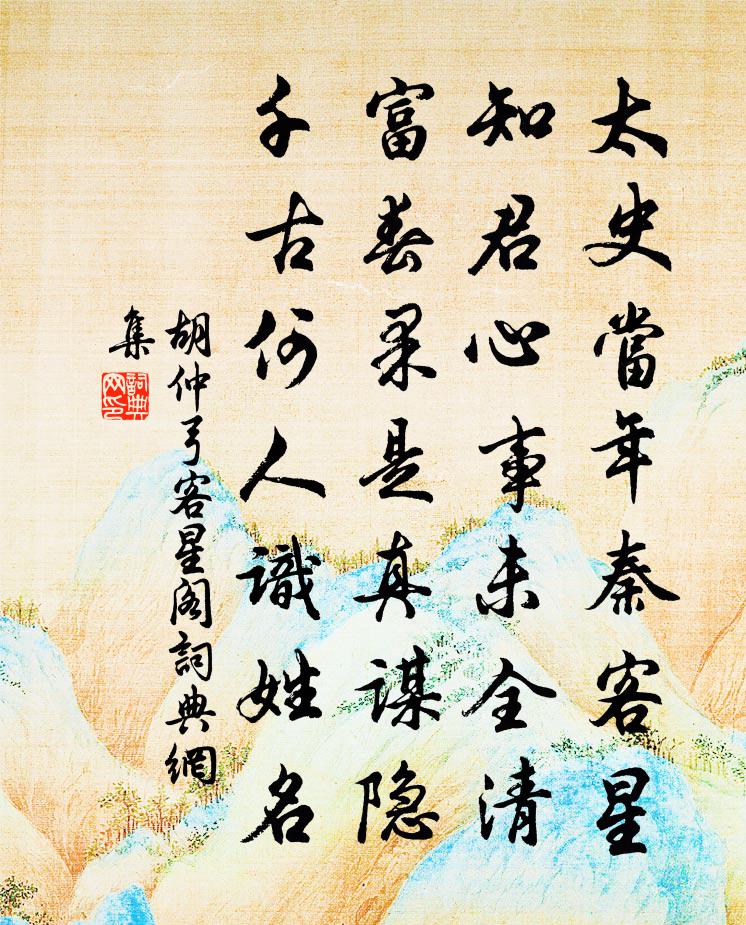 太史當年奏客星
知君心事未全清
富春果是真謀隐
千古何人識姓名
胡仲弓客星阁詞典網
集
詞典
网印